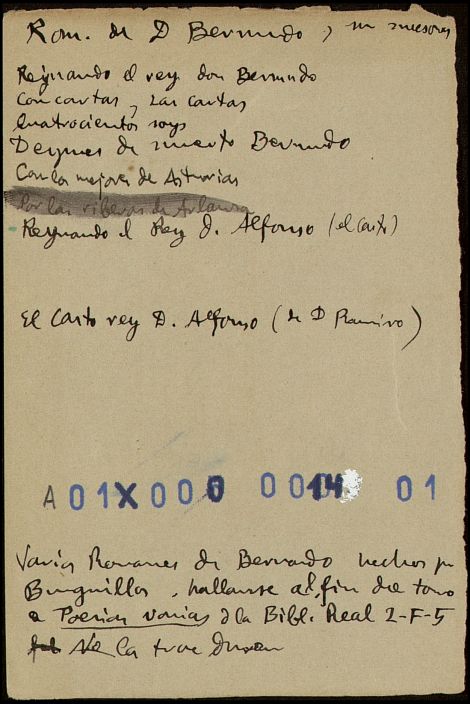 Rom. de D Bermudo, y su sucesores
Reynando el rey don Bermudo
Con cartas, las cartas
Cuatrocientos soys
Despues de muerto Bermudo
Con los mejores de Asturias
Por las riberas de Arlanza
Reynando el Rey D. Alfonso (el casto)
El Casto rey D. Alfonso (de D Ramiro)
A 01X000 00014 01
Varios Romances de Bernardo hechos por
Burguillos, hallanse al fin del tomo
Poesias varias de la Bibl. Real 2-F-5
No la trae Duran